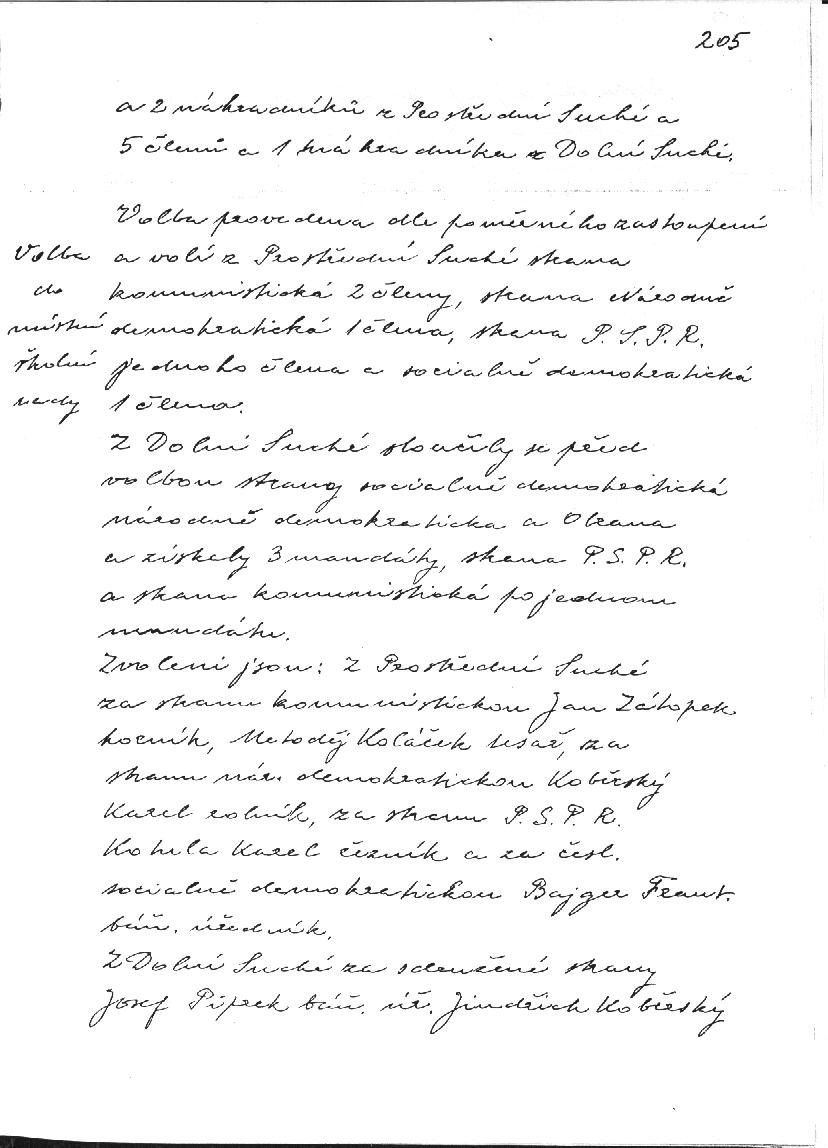 205
a 2 náhradníků z Prostřední Suché a
5 členů a 1 náhradníka z Dolní Suché.
Volba provedena dle poměrného zastoupení
a volí z Prostřední Suché strana
komunistická 2 členy, strana Národně
demokratická 1 člena, strana P. S. P. R.
jednoho člena a socialně demokratická
1 člena.
Volba
do
místní
školní
rady
Z Dolní Suché sloučily se před
volbou strany socialně demokratická
národně demokraticka a Obrana
a získaly 3 mandáty, strana P. S. P. R.
a strana komunistická po jednom
mandátu.
Zvoleni jsou: Z Prostřední Suché
za stranu komunistickou Jan Zátopek
horník, Metoděj Koláček tesař, za
stranu nár. demokratickou Kobřský
Karel rolník, za stranu P. S. P. R.
Kotula Karel řezník a za česl.
socialně demokratickou Bajger Frant.
báň. úředník.
Z Dolní Suché za sdružené strany
Josef Piprek báň. úř. Jindřich Kobřský